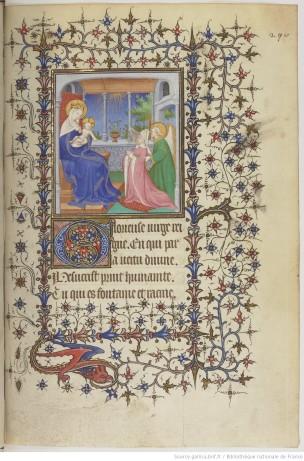 290
Glorieuse virge rei
gne. En qui par
la vertu divine.
Ihesucrist print humanite.
En qui es fontaine et racine.
Source gallica.bnf.fr / Bibliothèque nationale de France